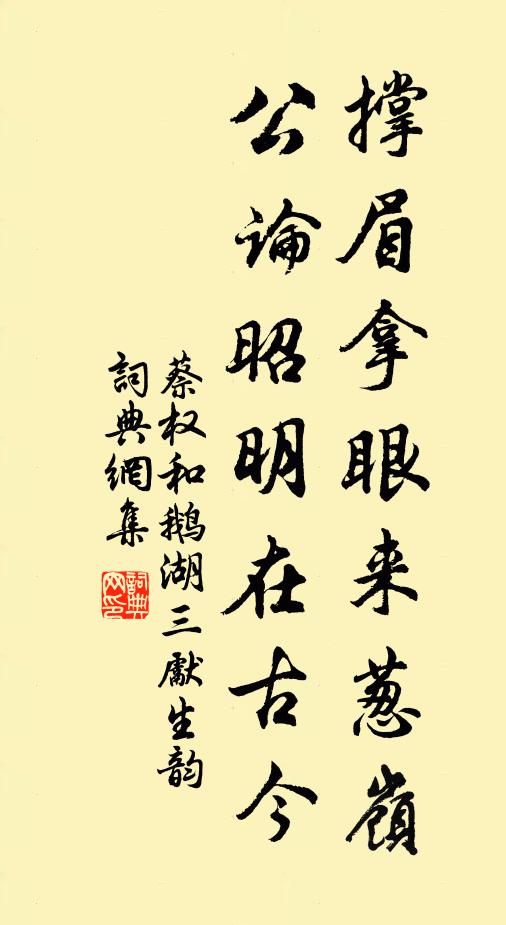 撑眉拿眼来葱嶺
公論昭明在古今
蔡权和鹅湖三獻生韵
詞典網集
詞典网印